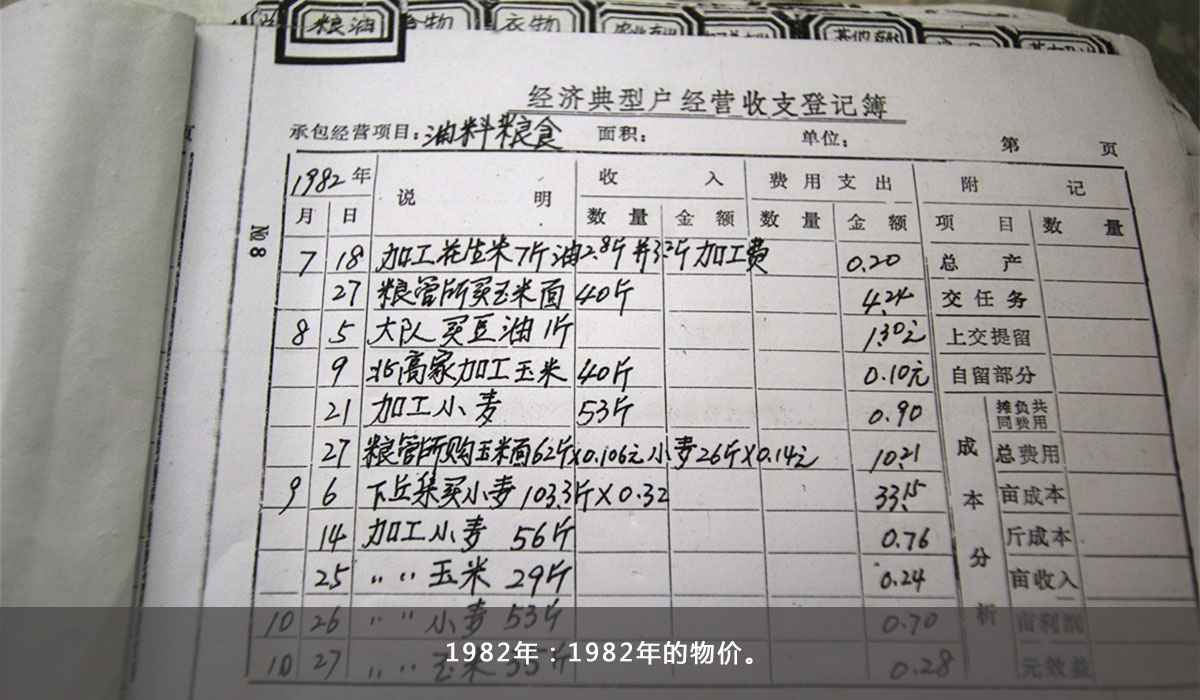 粮油 食物 衣物
经济典型户经营收支登记簿
承包经营项目：油料粮食 面积： 单位： 第 页
1982年 说 明 收 入 费 用 支 出 附 记
月 日 数 量 金 额 数 量 金 额 项 目 数 量
№8
7 18 加工花生米7斤油2.8斤并3.2斤加工费 0.20 总 产
27 粮管所买玉米面 40斤 4.24 交任务
8 5 大队买豆油1斤 1.30元 上交提留
9 北高家加工玉米 40斤 0.10元 自留部分
21 加工小麦 53斤 0.90 摊负共同费用
27 粮管所购玉米面62斤×0.106元小麦26斤×0.14元 10.21 总费用
9 6 下丘集买小麦103.3斤×0.32 33.15 亩成本
14 加工小麦 56斤 0.76 斤成本
25 〃 〃 玉米 29斤 0.24 亩收入
10 26 〃 〃 小麦 53斤 0.70 亩利润
10 27 〃 〃 玉米 35斤 0.28 元效益
成本分析
1982年：1982年的物价。